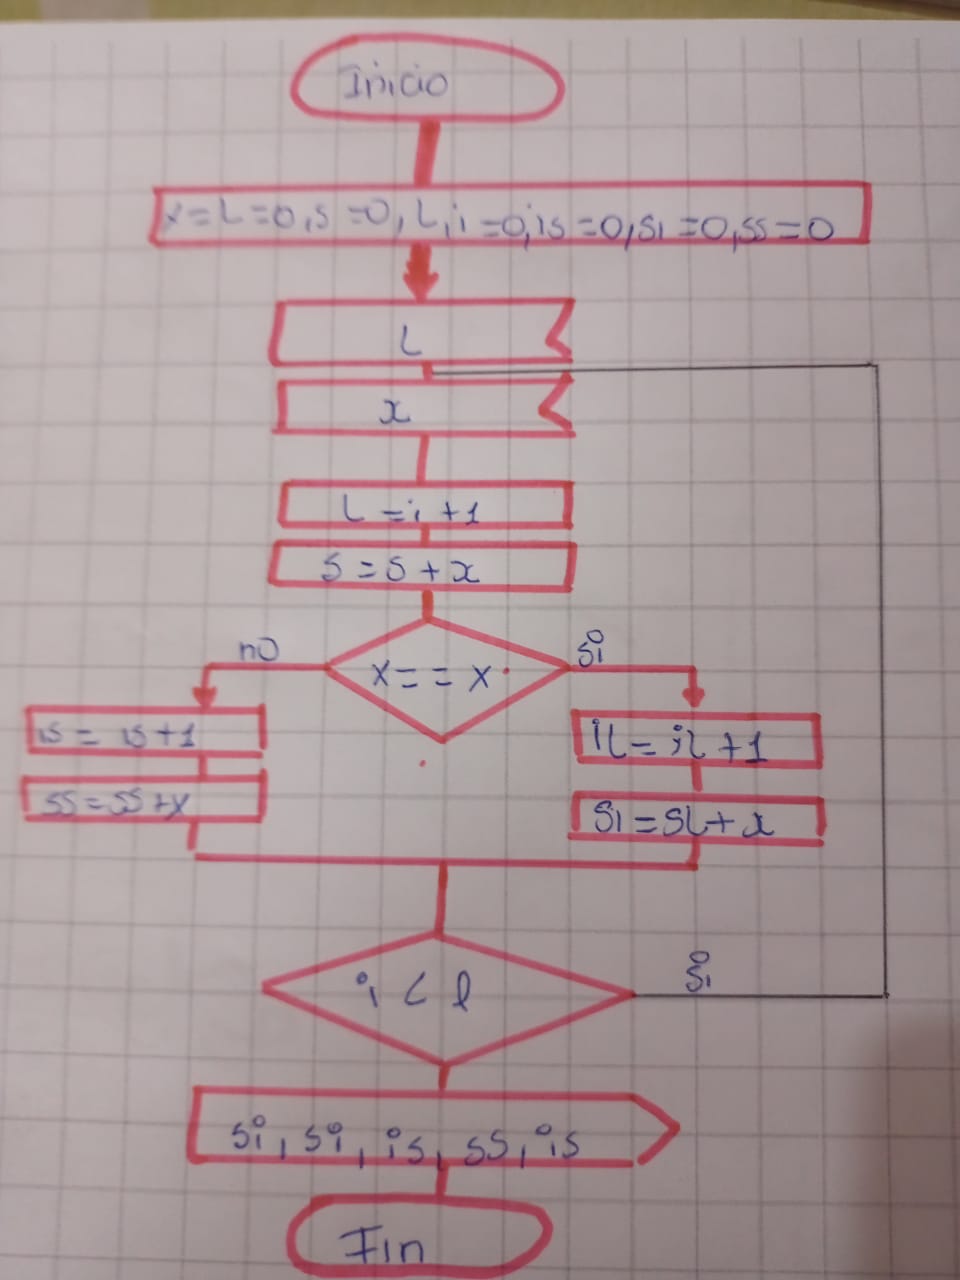 Inicio
x=L=0,s=0,L,i=0,is=0,si=0,ss=0
L
x
L=i+1
s=s+x
no
x==x
si
is=is+1
iL=iL+1
ss=ss+x
si=sL+x
i<l
si
si,si,is,ss,is
Fin